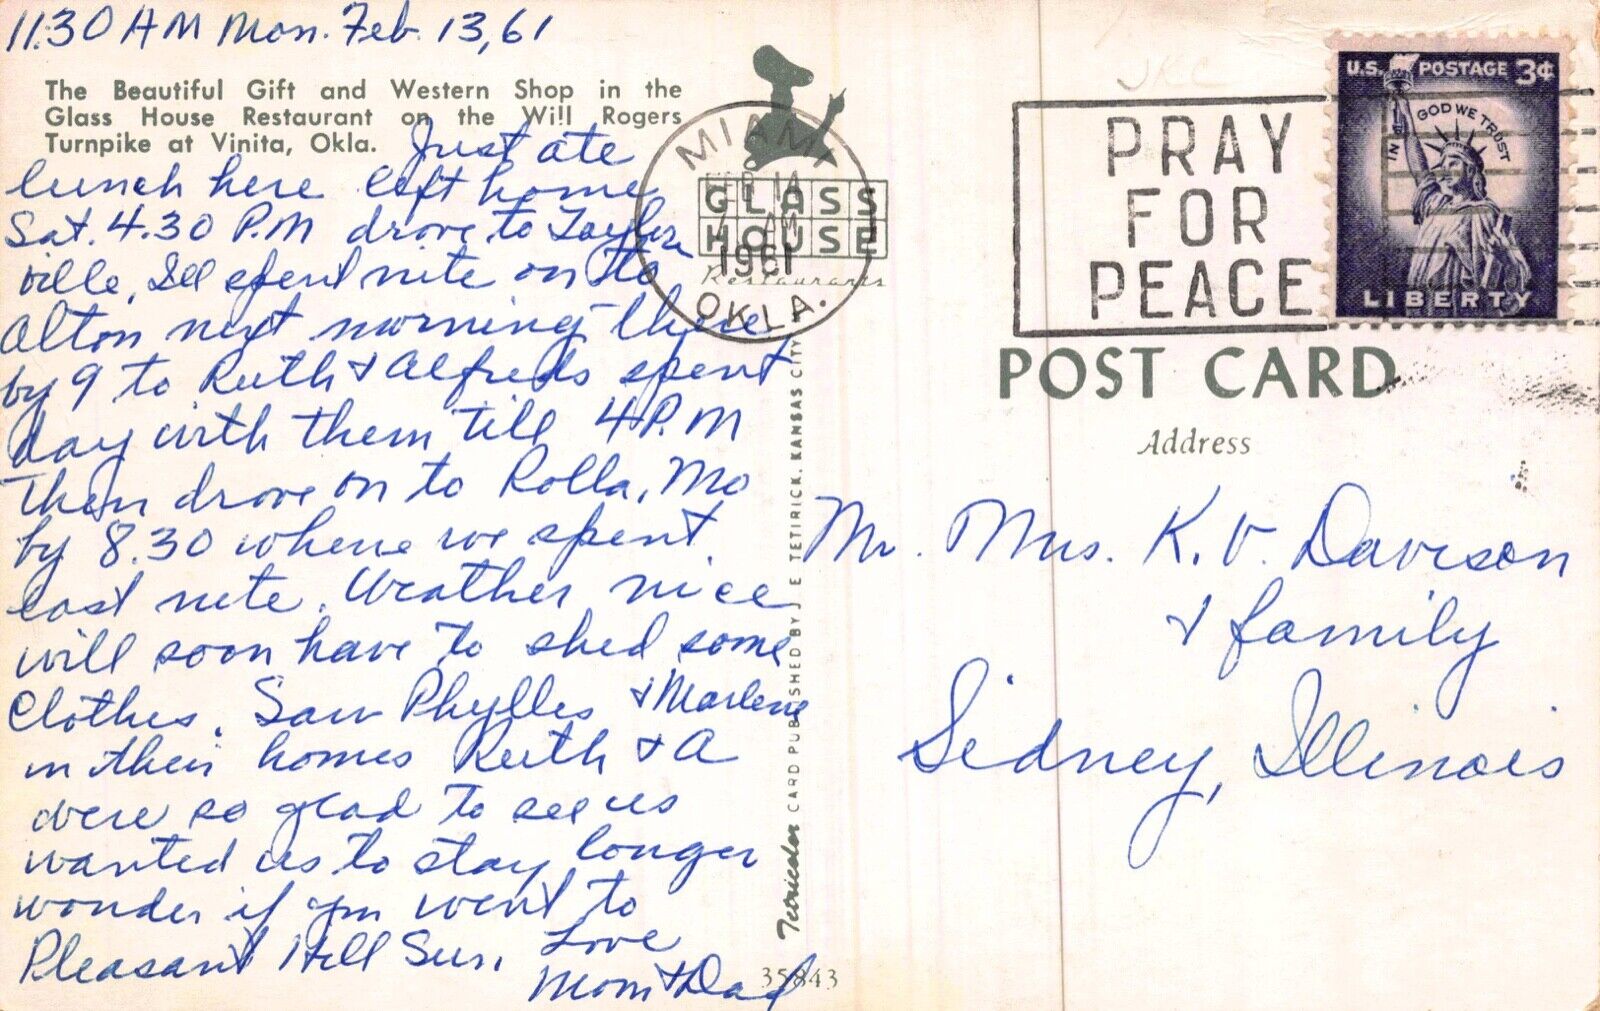 11:30 AM Mon. Feb. 13, 61
The Beautiful Gift and Western Shop in the
Glass House Restaurant on the Will Rogers
Turnpike at Vinita, Okla.
Just ate
lunch here left home
Sat. 4.30 P.M drove to Taylor
ville, Ill spent nite on to
Alton next morning there
by 9 to Ruth & Alfreds spent
day with them till 4 P.M
Then drove on to Rolla, Mo
by 8.30 where we spent
last nite. Weather nice
will soon have to shed some
clothes. Saw Phylles & Marlene
in their homes Ruth & A
were so glad to see us
wanted us to stay longer
wonder if you went to
Pleasant Hill Sun. Love
Mom & Dad
GLASS
HOUSE
Restaurants
MIAMI
14
AM
1961
OKLA.
PRAY
FOR
PEACE
U.S. POSTAGE 3¢
IN GOD WE TRUST
LIBERTY
POST CARD
Address
Mr. Mrs. K. V. Davison
& family
Sidney, Illinois
Tetricolor CARD PUBLISHED BY J. E. TETIRICK, KANSAS CITY
35843